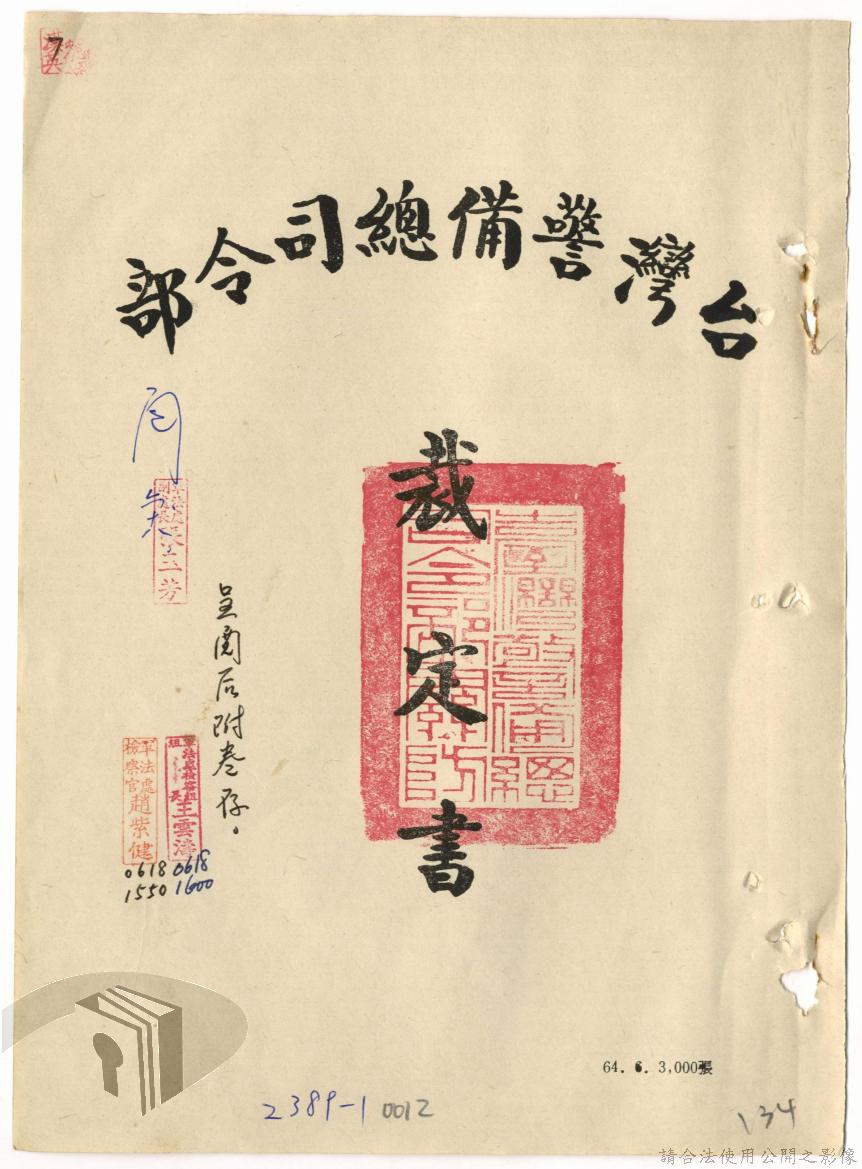 7
台灣警備總司令部
裁定書
臺灣警備總司令部關防
閱
呈閱后附卷存。
王雲濤
軍法處檢察官趙紫健
0618 1600
0618 1550
64. 6. 3,000張
2389-1 0012
134
請合法使用公開之影像